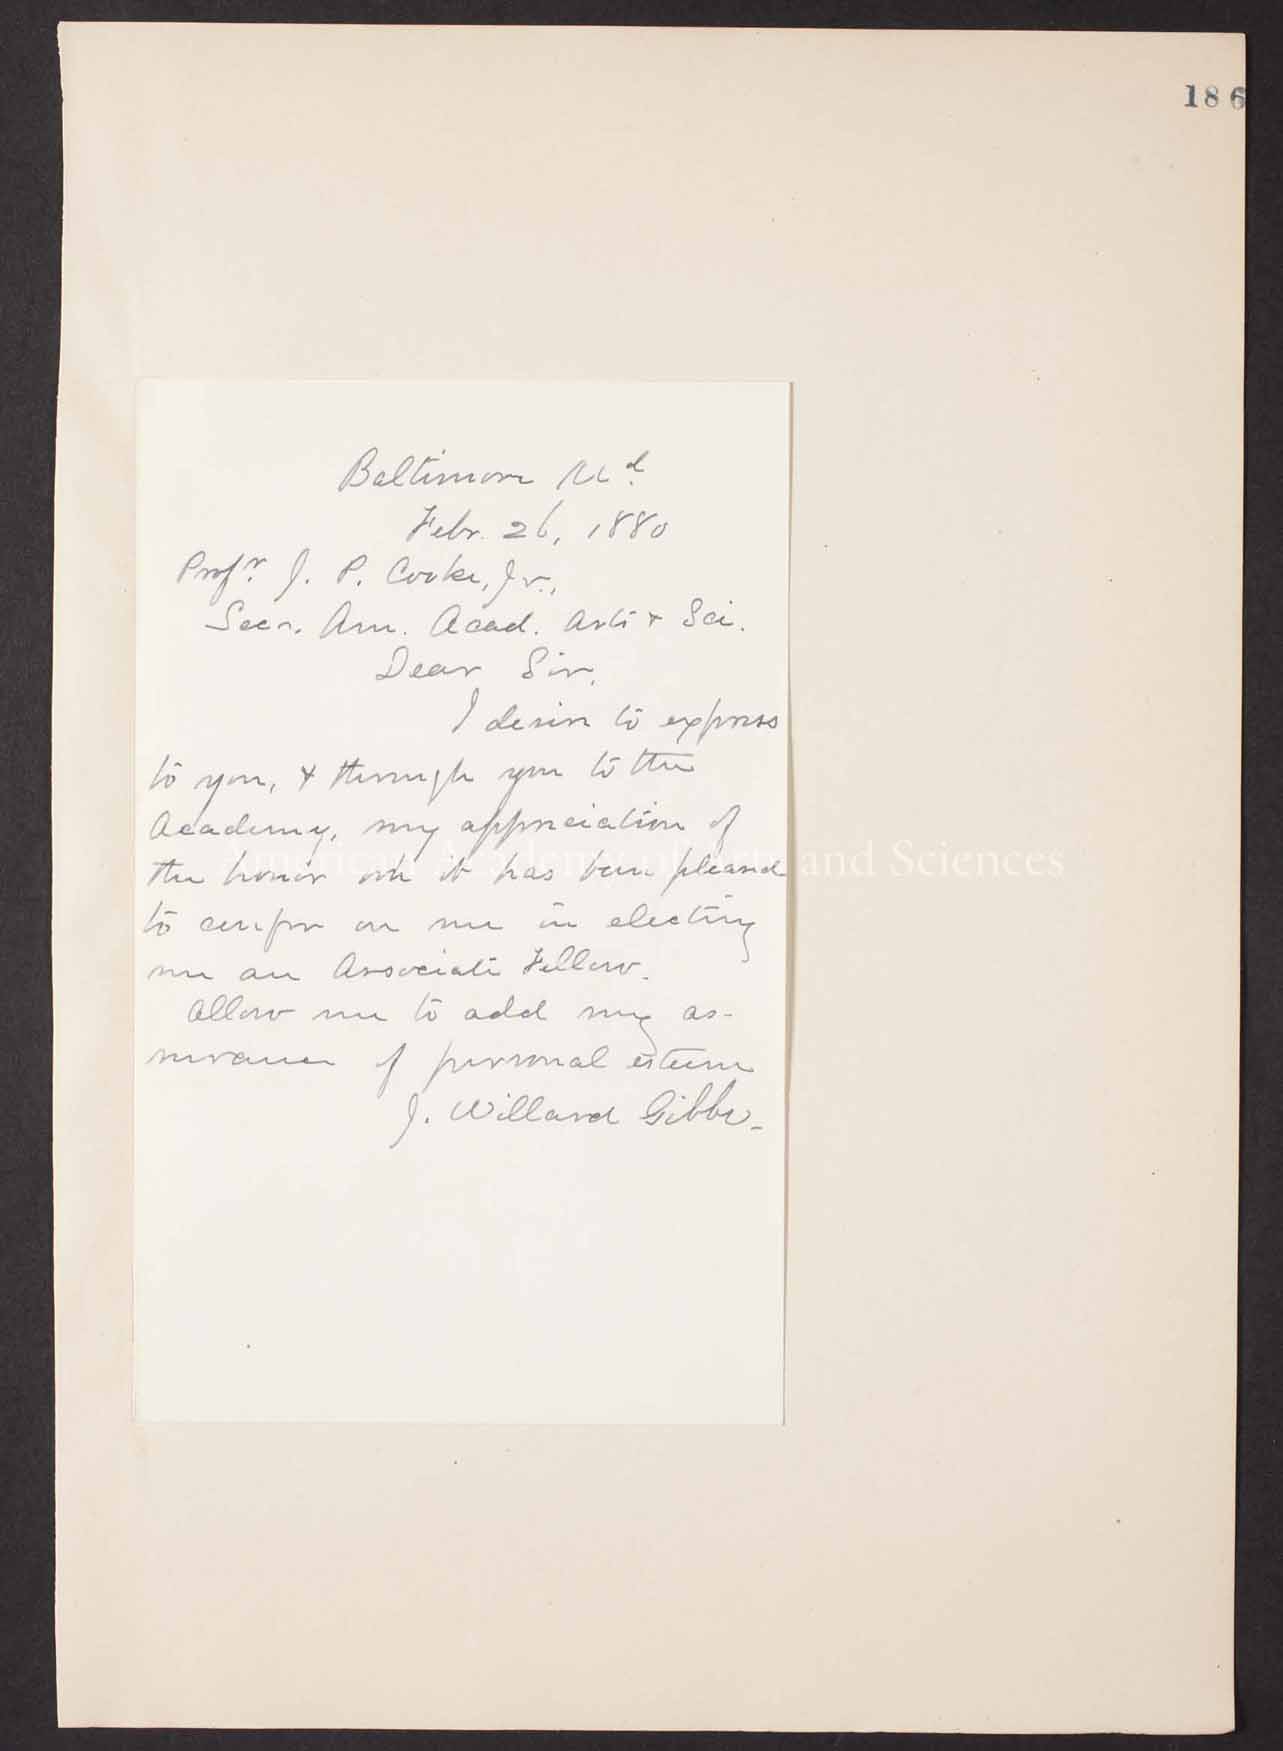 186
Baltimore Md.
Febr. 26, 1880
Profr. J. P. Cooke, Jr.,
Secr. Am. Acad. Arts & Sci.
Dear Sir,
I desire to express
to you, & through you to the
Academy, my appreciation of
the honor wh it has been pleased
to confer on me in electing
me an Associate Fellow.
Allow me to add my as-
surance of personal esteem
J. Willard Gibbs.
American Academy of Arts and Sciences